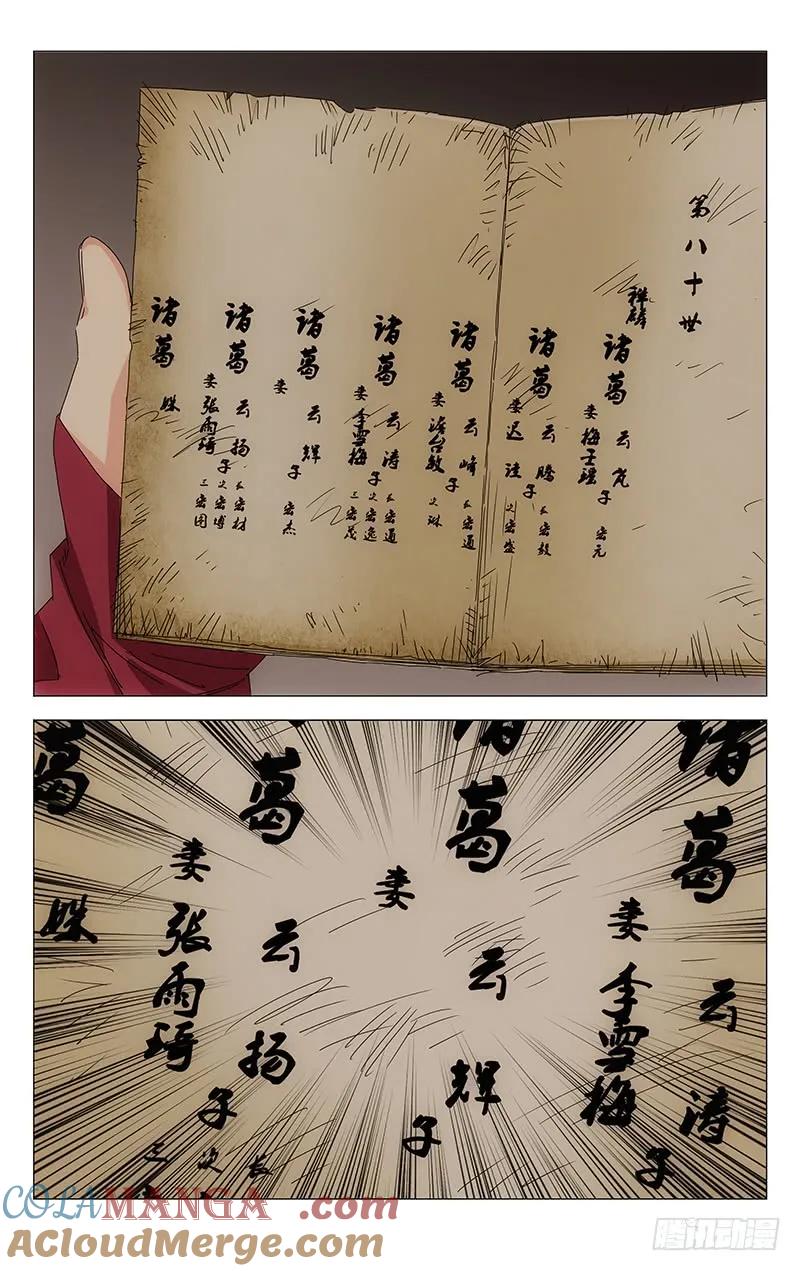 第八十世
诸葛云
妻梅
子宏元
诸葛云腾
妻迟
子长宏毅
次宏盛
诸葛云峰
妻澹台敏
子长宏通
次琳
诸葛云涛
妻李雪梅
子长宏道
次宏逸
三宏茂
诸葛云辉
妻
子宏杰
诸葛云扬
妻张雨琦
子长宏材
次宏博
三宏图
诸葛姝
诸葛云涛
妻李雪梅
子
葛云辉
妻
子
葛云扬
妻张雨琦
子
长
次
三
葛姝
COLAMANGA.COM
AcloudMerge.com
腾讯动漫